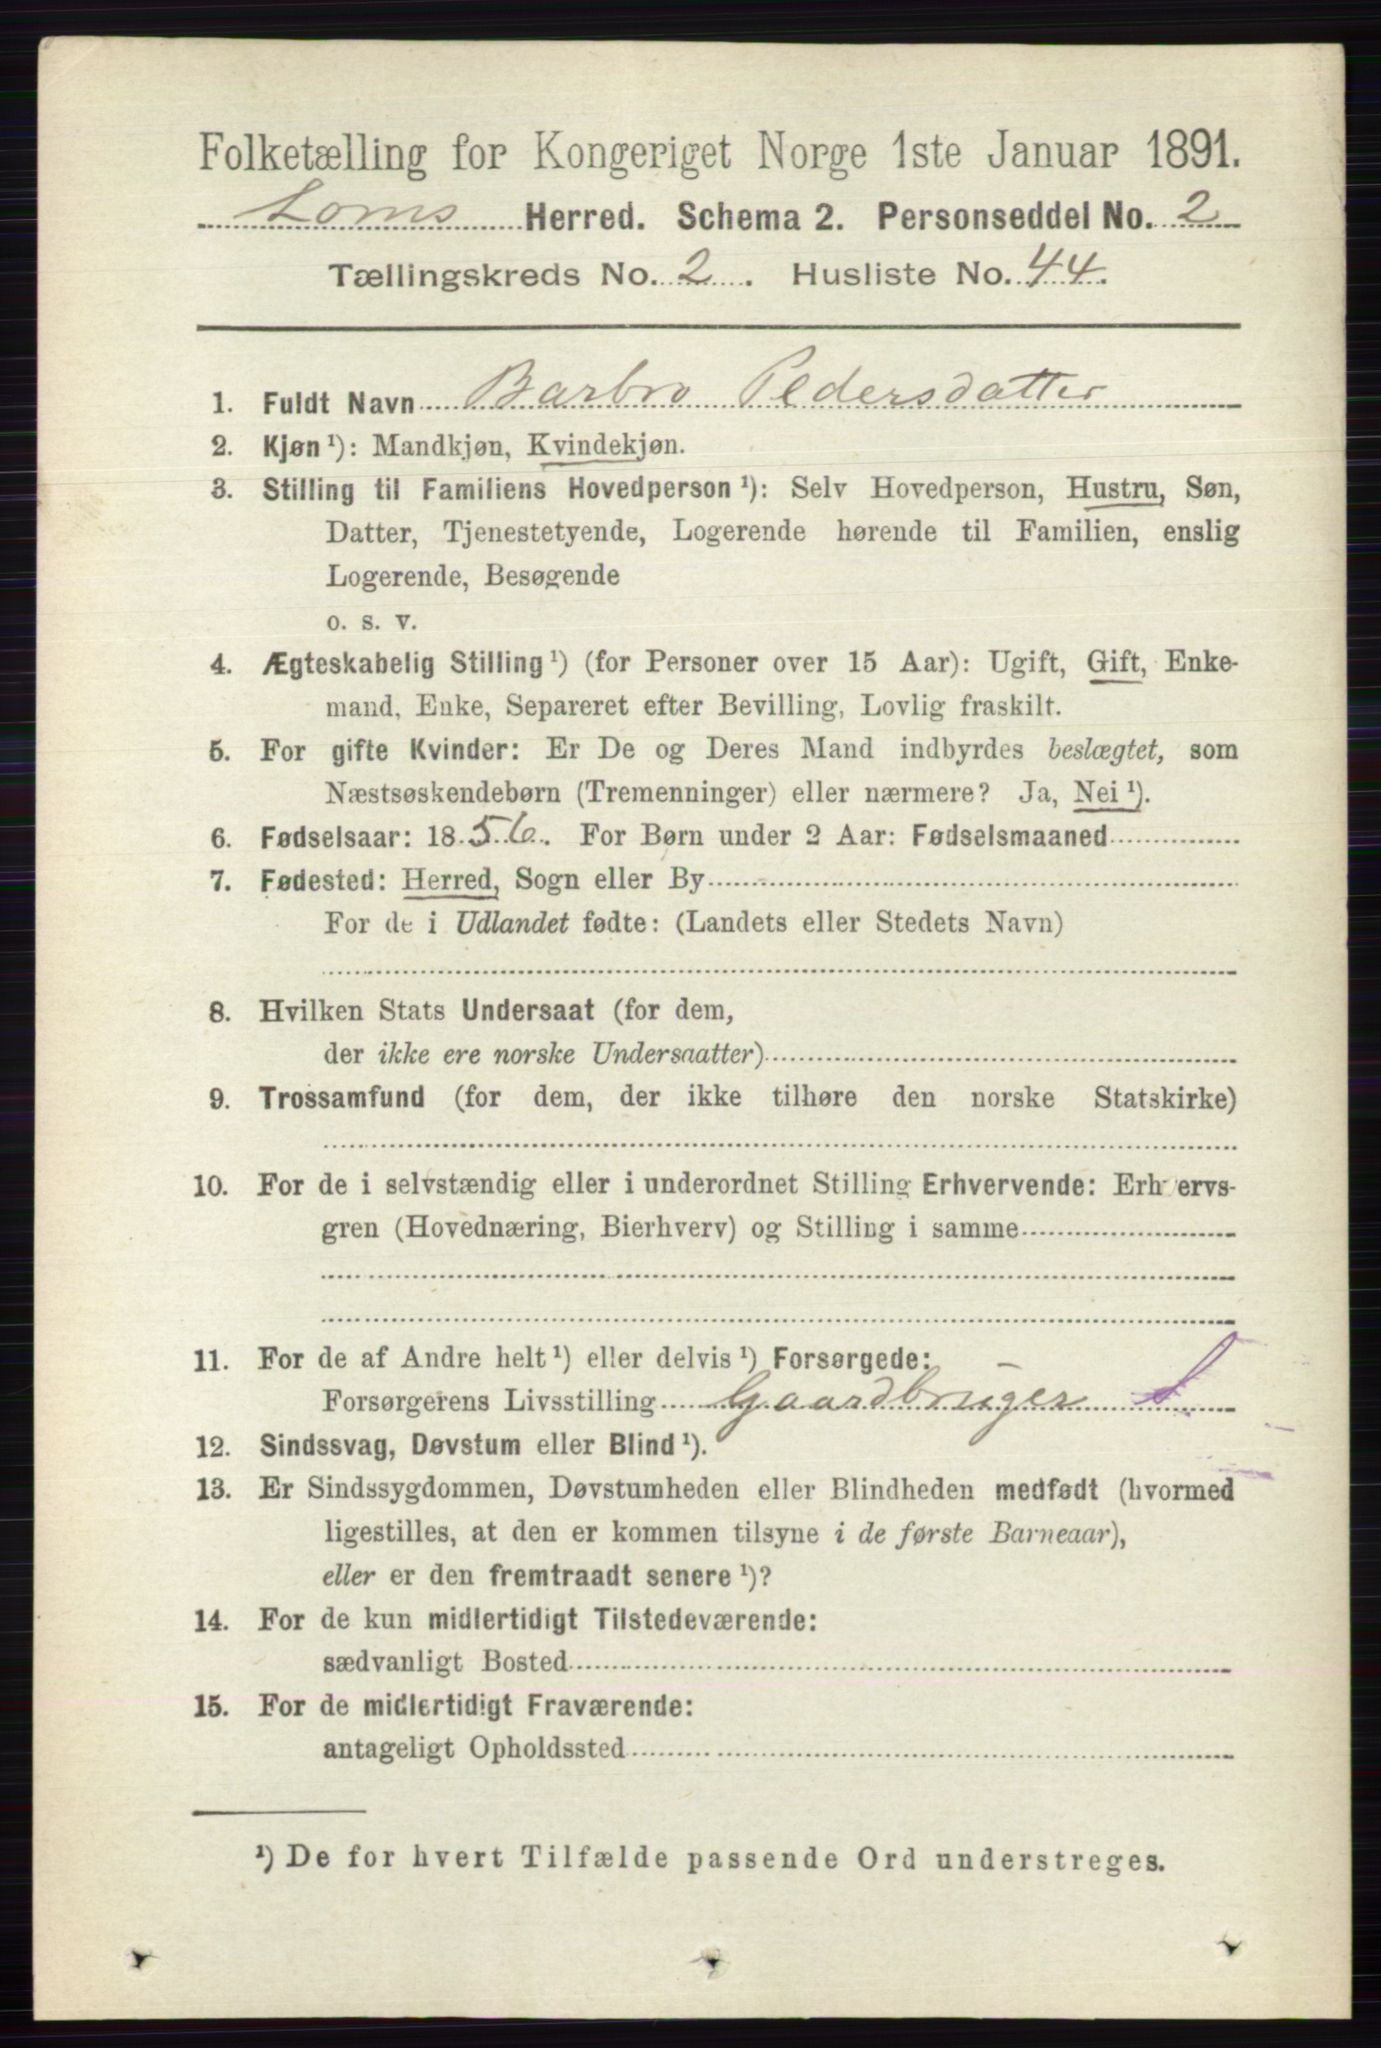 Folketælling for Kongeriget Norge 1ste Januar 1891.
Loms Herred. Schema 2. Personseddel No. 2
Tællingskreds No. 2. Husliste No. 44.
1. Fuldt Navn Barbro Pedersdatter
2. Kjøn ¹): Mandkjøn, Kvindekjøn.
3. Stilling til Familiens Hovedperson ¹): Selv Hovedperson, Hustru, Søn,
Datter, Tjenestetyende, Logerende hørende til Familien, enslig
Logerende, Besøgende
o. s. v.
4. Ægteskabelig Stilling ¹) (for Personer over 15 Aar): Ugift, Gift, Enke-
mand, Enke, Separeret efter Bevilling, Lovlig fraskilt.
5. For gifte Kvinder: Er De og Deres Mand indbyrdes beslægtet, som
Næstsøskendebørn (Tremenninger) eller nærmere? Ja, Nei ¹).
6. Fødselsaar: 1856. For Børn under 2 Aar: Fødselsmaaned
7. Fødested: Herred, Sogn eller By
For de i Udlandet fødte: (Landets eller Stedets Navn)
8. Hvilken Stats Undersaat (for dem,
der ikke ere norske Undersaatter)
9. Trossamfund (for dem, der ikke tilhøre den norske Statskirke)
10. For de i selvstændig eller i underordnet Stilling Erhvervende: Erhvervs-
gren (Hovednæring, Bierhverv) og Stilling i samme
11. For de af Andre helt ¹) eller delvis ¹) Forsørgede:
Forsørgerens Livsstilling Gaardbruger
12. Sindssvag, Døvstum eller Blind ¹).
13. Er Sindssygdommen, Døvstumheden eller Blindheden medfødt (hvormed
ligestilles, at den er kommen tilsyne i de første Barneaar),
eller er den fremtraadt senere ¹)?
14. For de kun midlertidigt Tilstedeværende:
sædvanligt Bosted
15. For de midlertidigt Fraværende:
antageligt Opholdssted
¹) De for hvert Tilfælde passende Ord understreges.